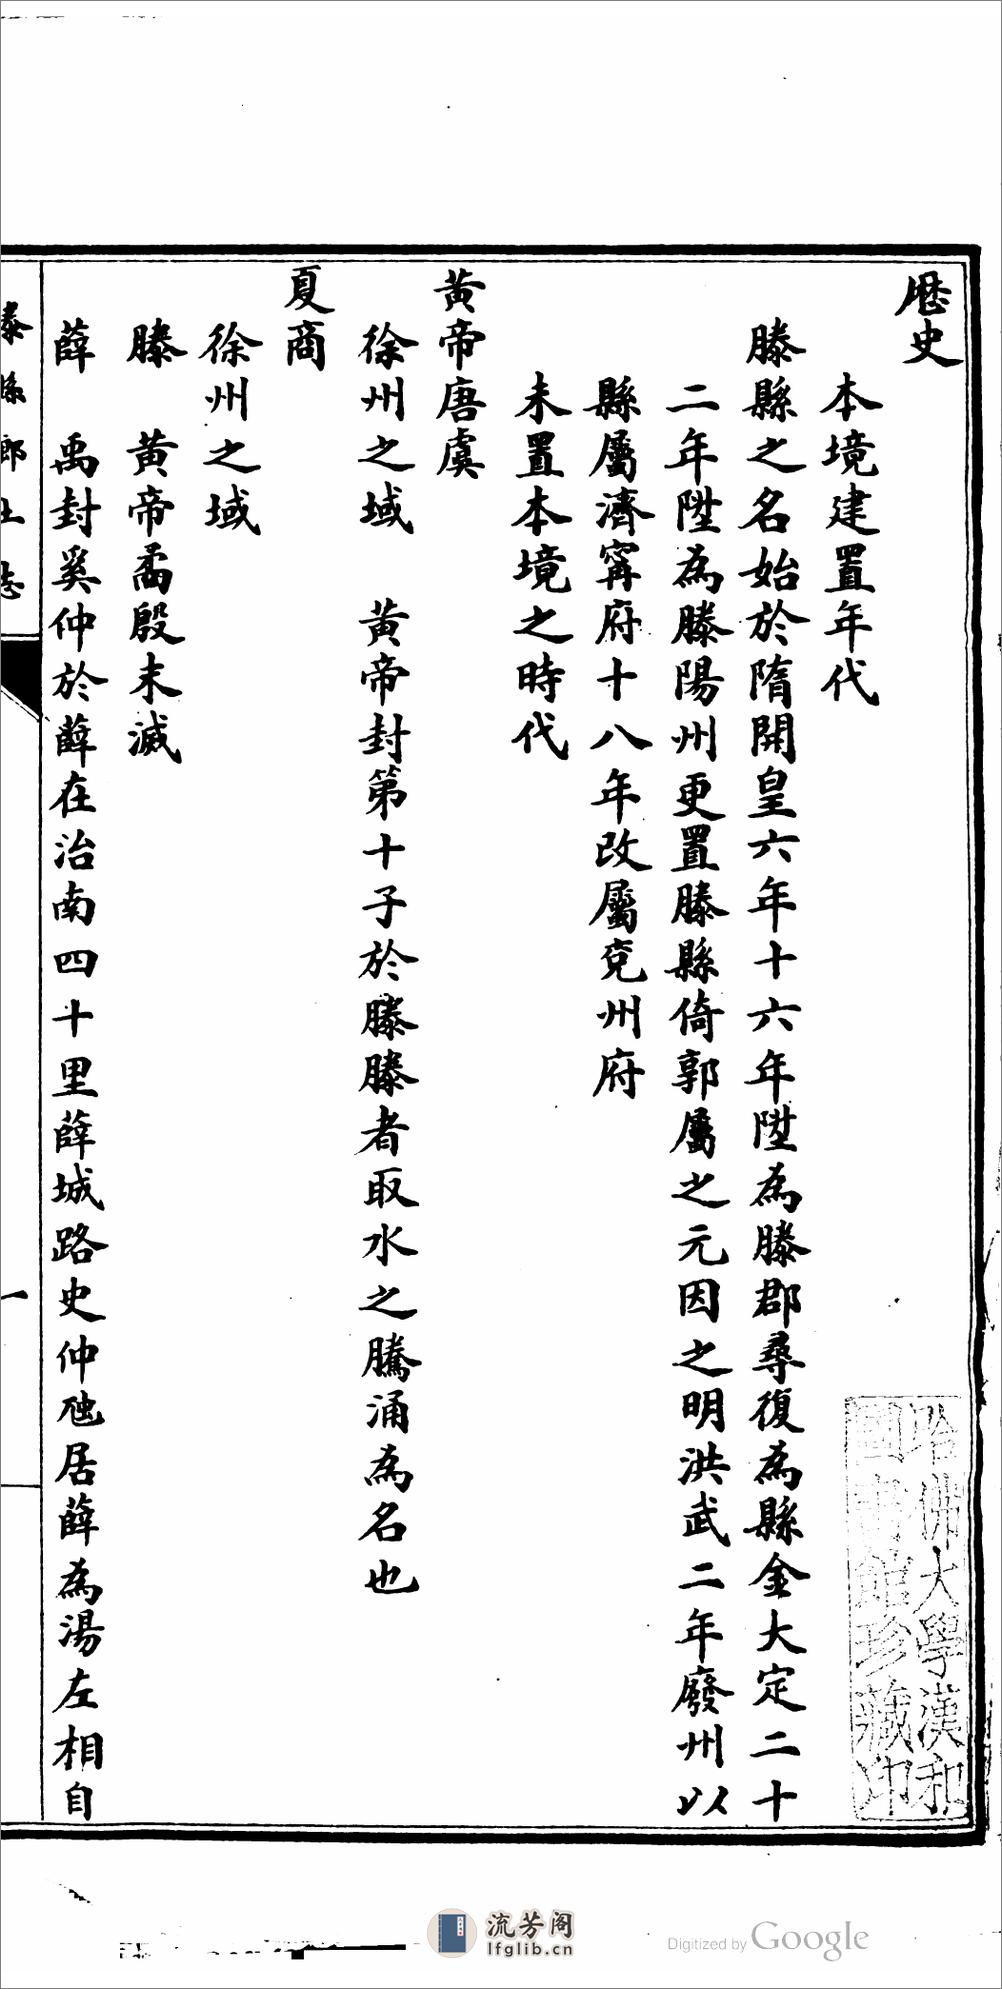 歷史
本境建置年代
滕縣之名始於隋開皇六年十六年陞為滕郡尋復為縣金大定二十
二年陞為滕陽州更置滕縣倚郭屬之元因之明洪武二年廢州以
縣屬濟甯府十八年改屬兗州府
未置本境之時代
黃帝唐虞
徐州之域 黃帝封第十子於滕滕者取水之騰涌為名也
夏商
徐州之域
滕 黃帝裔殷末滅
薛 禹封奚仲於薛在治南四十里薛城路史仲虺居薛為湯左相自
滕縣鄉土志
一
哈佛大學漢和
圖書館珍藏印
流芳阁
lfglib.cn
Digitized by Google